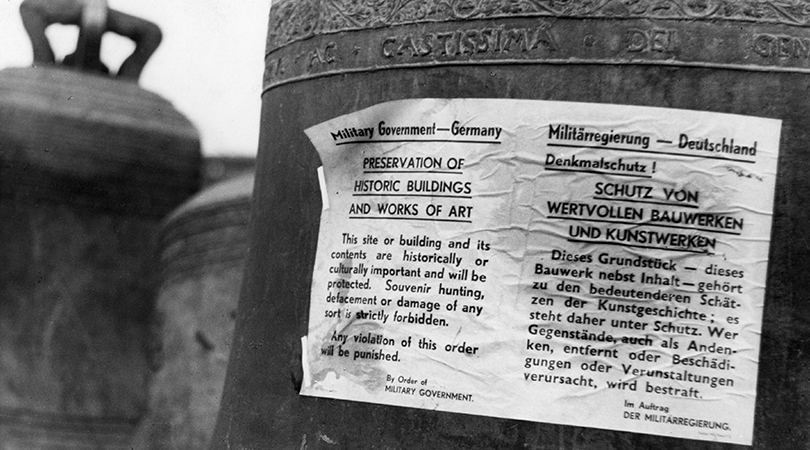 AC · CASTISSIMA · DEI · GEN
Military Government—Germany
PRESERVATION OF
HISTORIC BUILDINGS
AND WORKS OF ART
This site or building and its
contents are historically or
culturally important and will be
protected. Souvenir hunting,
defacement or damage of any
sort is strictly forbidden.
Any violation of this order
will be punished.
By Order of
MILITARY GOVERNMENT.
Militärregierung — Deutschland
Denkmalschutz !
SCHUTZ VON
WERTVOLLEN BAUWERKEN
UND KUNSTWERKEN
Dieses Grundstück — dieses
Bauwerk nebst Inhalt — gehört
zu den bedeutenderen Schät-
zen der Kunstgeschichte; es
steht daher unter Schutz. Wer
Gegenstände, auch als Anden-
ken, entfernt oder Beschädi-
gungen oder Verunstaltungen
verursacht, wird bestraft.
Im Auftrag
DER MILITÄRREGIERUNG.